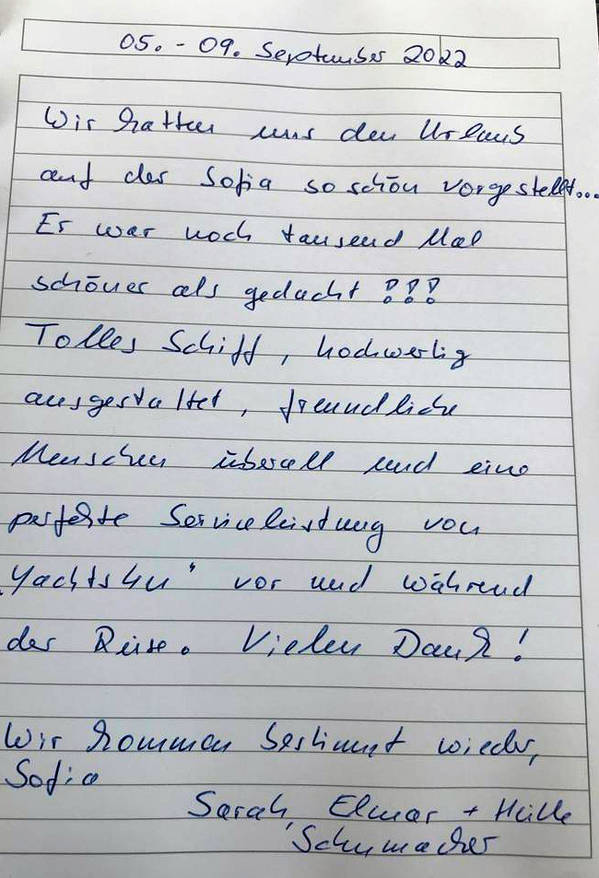 05. - 09. September 2022
Wir hatten uns den Urlaub
auf der Sofia so schön vorgestellt...
Er war noch tausend Mal
schöner als gedacht !!!
Tolles Schiff, hochwertig
ausgestaltet, freundliche
Menschen überall und eine
perfekte Serviceleistung von
"Yacht4u" vor und während
der Reise. Vielen Dank!
Wir kommen bestimmt wieder,
Sofia
Sarah, Elmar +
Schumacher